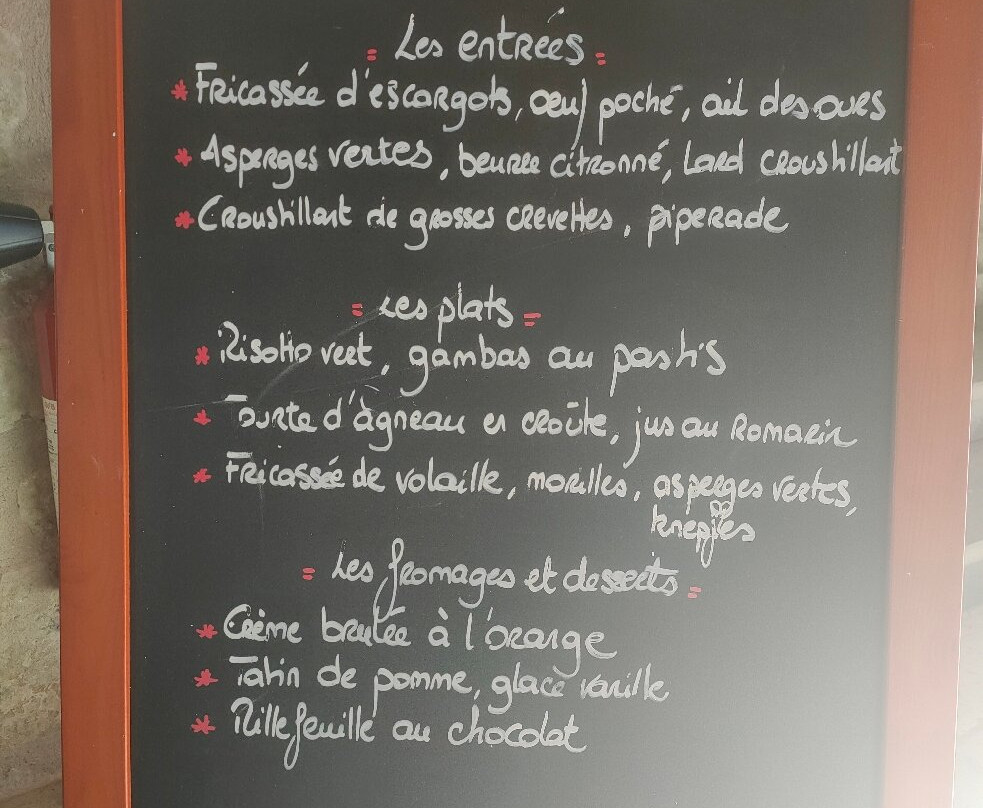 = Les entrées =
* Fricassée d'escargots, œuf poché, ail des ours
* Asperges vertes, beurre citronné, Lard croustillant
* Croustillant de grosses crevettes, piperade
= Les plats =
* Risotto vert, gambas au pastis
* Tourte d'agneau en croûte, jus au Romarin
* Fricassée de volaille, morilles, asperges vertes,
knepfles
= Les fromages et desserts =
* Crème brulée à l'orange
* Tatin de pomme, glace vanille
* Millefeuille au chocolat